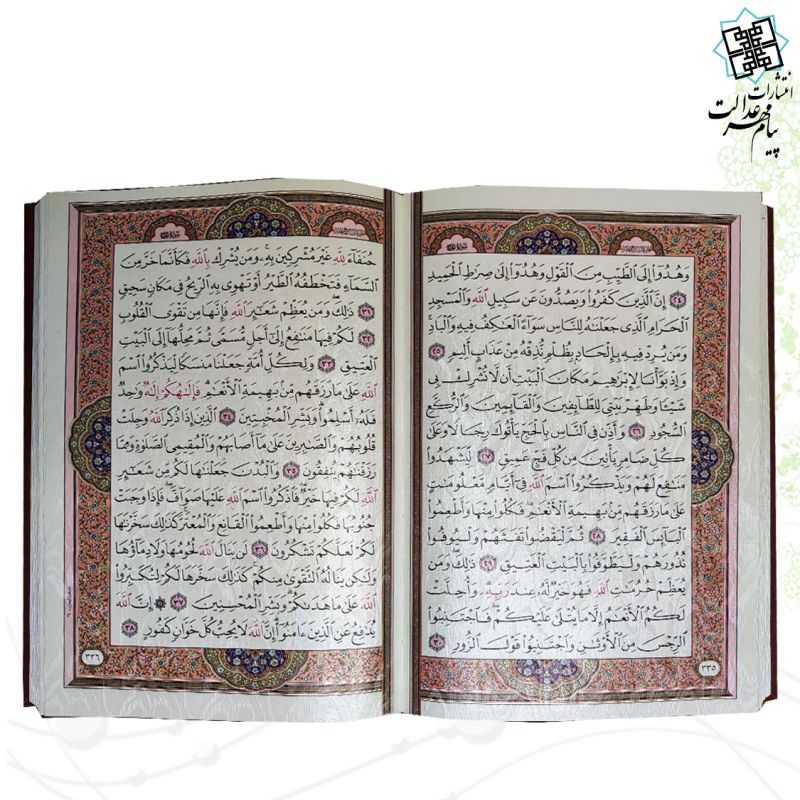 انتشارات
پیام مهر عدالت
وَهُدُوٓا۟ إِلَى ٱلطَّيِّبِ مِنَ ٱلْقَوْلِ وَهُدُوٓا۟ إِلَىٰ صِرَٰطِ ٱلْحَمِيدِ
٢٤ إِنَّ ٱلَّذِينَ كَفَرُوا۟ وَيَصُدُّونَ عَن سَبِيلِ ٱللَّهِ وَٱلْمَسْجِدِ
ٱلْحَرَامِ ٱلَّذِى جَعَلْنَٰهُ لِلنَّاسِ سَوَآءً ٱلْعَٰكِفُ فِيهِ وَٱلْبَادِ
وَمَن يُرِدْ فِيهِ بِإِلْحَادٍۭ بِظُلْمٍ نُّذِقْهُ مِنْ عَذَابٍ أَلِيمٍ ٢٥
وَإِذْ بَوَّأْنَا لِإِبْرَٰهِيمَ مَكَانَ ٱلْبَيْتِ أَن لَّا تُشْرِكْ بِى
شَيْـًٔا وَطَهِّرْ بَيْتِىَ لِلطَّآئِفِينَ وَٱلْقَآئِمِينَ وَٱلرُّكَّعِ
ٱلسُّجُودِ ٢٦ وَأَذِّن فِى ٱلنَّاسِ بِٱلْحَجِّ يَأْتُوكَ رِجَالًا وَعَلَىٰ
كُلِّ ضَامِرٍ يَأْتِينَ مِن كُلِّ فَجٍّ عَمِيقٍ ٢٧ لِّيَشْهَدُوا۟
مَنَٰفِعَ لَهُمْ وَيَذْكُرُوا۟ ٱسْمَ ٱللَّهِ فِىٓ أَيَّامٍ مَّعْلُومَٰتٍ
عَلَىٰ مَا رَزَقَهُم مِّنۢ بَهِيمَةِ ٱلْأَنْعَٰمِ فَكُلُوا۟ مِنْهَا وَأَطْعِمُوا۟
ٱلْبَآئِسَ ٱلْفَقِيرَ ٢٨ ثُمَّ لْيَقْضُوا۟ تَفَثَهُمْ وَلْيُوفُوا۟
نُذُورَهُمْ وَلْيَطَّوَّفُوا۟ بِٱلْبَيْتِ ٱلْعَتِيقِ ٢٩ ذَٰلِكَ وَمَن
يُعَظِّمْ حُرُمَٰتِ ٱللَّهِ فَهُوَ خَيْرٌ لَّهُۥ عِندَ رَبِّهِۦ وَأُحِلَّتْ
لَكُمُ ٱلْأَنْعَٰمُ إِلَّا مَا يُتْلَىٰ عَلَيْكُمْ فَٱجْتَنِبُوا۟
ٱلرِّجْسَ مِنَ ٱلْأَوْثَٰنِ وَٱجْتَنِبُوا۟ قَوْلَ ٱلزُّورِ ٣٠
٣٣٥
حُنَفَآءَ لِلَّهِ غَيْرَ مُشْرِكِينَ بِهِۦ وَمَن يُشْرِكْ بِٱللَّهِ فَكَأَنَّمَا خَرَّ مِنَ
ٱلسَّمَآءِ فَتَخْطَفُهُ ٱلطَّيْرُ أَوْ تَهْوِى بِهِ ٱلرِّيحُ فِى مَكَانٍ سَحِيقٍ
٣١ ذَٰلِكَ وَمَن يُعَظِّمْ شَعَٰٓئِرَ ٱللَّهِ فَإِنَّهَا مِن تَقْوَى ٱلْقُلُوبِ
٣٢ لَكُمْ فِيهَا مَنَٰفِعُ إِلَىٰٓ أَجَلٍ مُّسَمًّى ثُمَّ مَحِلُّهَآ إِلَى ٱلْبَيْتِ
ٱلْعَتِيقِ ٣٣ وَلِكُلِّ أُمَّةٍ جَعَلْنَا مَنسَكًا لِّيَذْكُرُوا۟ ٱسْمَ
ٱللَّهِ عَلَىٰ مَا رَزَقَهُم مِّنۢ بَهِيمَةِ ٱلْأَنْعَٰمِ فَإِلَٰهُكُمْ إِلَٰهٌ وَٰحِدٌ
فَلَهُۥٓ أَسْلِمُوا۟ وَبَشِّرِ ٱلْمُخْبِتِينَ ٣٤ ٱلَّذِينَ إِذَا ذُكِرَ ٱللَّهُ وَجِلَتْ
قُلُوبُهُمْ وَٱلصَّٰبِرِينَ عَلَىٰ مَآ أَصَابَهُمْ وَٱلْمُقِيمِى ٱلصَّلَوٰةِ وَمِمَّا
رَزَقْنَٰهُمْ يُنفِقُونَ ٣٥ وَٱلْبُدْنَ جَعَلْنَٰهَا لَكُم مِّن شَعَٰٓئِرِ
ٱللَّهِ لَكُمْ فِيهَا خَيْرٌ فَٱذْكُرُوا۟ ٱسْمَ ٱللَّهِ عَلَيْهَا صَوَآفَّ فَإِذَا وَجَبَتْ
جُنُوبُهَا فَكُلُوا۟ مِنْهَا وَأَطْعِمُوا۟ ٱلْقَانِعَ وَٱلْمُعْتَرَّ كَذَٰلِكَ سَخَّرْنَٰهَا
لَكُمْ لَعَلَّكُمْ تَشْكُرُونَ ٣٦ لَن يَنَالَ ٱللَّهَ لُحُومُهَا وَلَا دِمَآؤُهَا
وَلَٰكِن يَنَالُهُ ٱلتَّقْوَىٰ مِنكُمْ كَذَٰلِكَ سَخَّرَهَا لَكُمْ لِتُكَبِّرُوا۟
ٱللَّهَ عَلَىٰ مَا هَدَىٰكُمْ وَبَشِّرِ ٱلْمُحْسِنِينَ ٣٧ ۞ إِنَّ ٱللَّهَ
يُدَٰفِعُ عَنِ ٱلَّذِينَ ءَامَنُوٓا۟ إِنَّ ٱللَّهَ لَا يُحِبُّ كُلَّ خَوَّانٍ كَفُورٍ ٣٨
٣٣٦